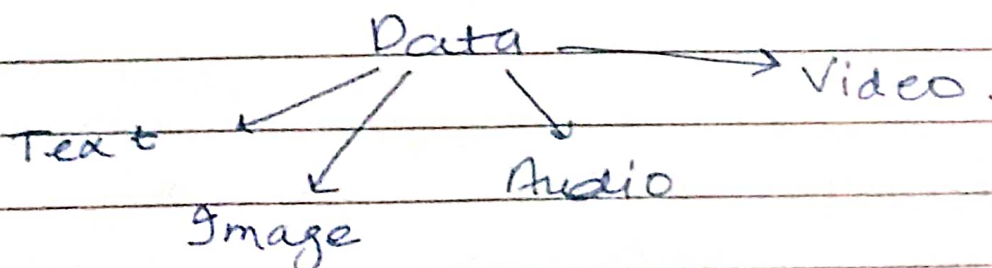 Data
Video.
Text
Audio
Image